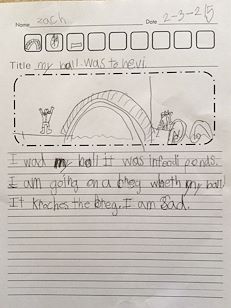 Name zach Date 2-3-215
Title my ball was to hevi.
I wad my ball it was infoodi ponds.
I am going on a breg wheth my ball!
It kraches the breg. I am Sad.